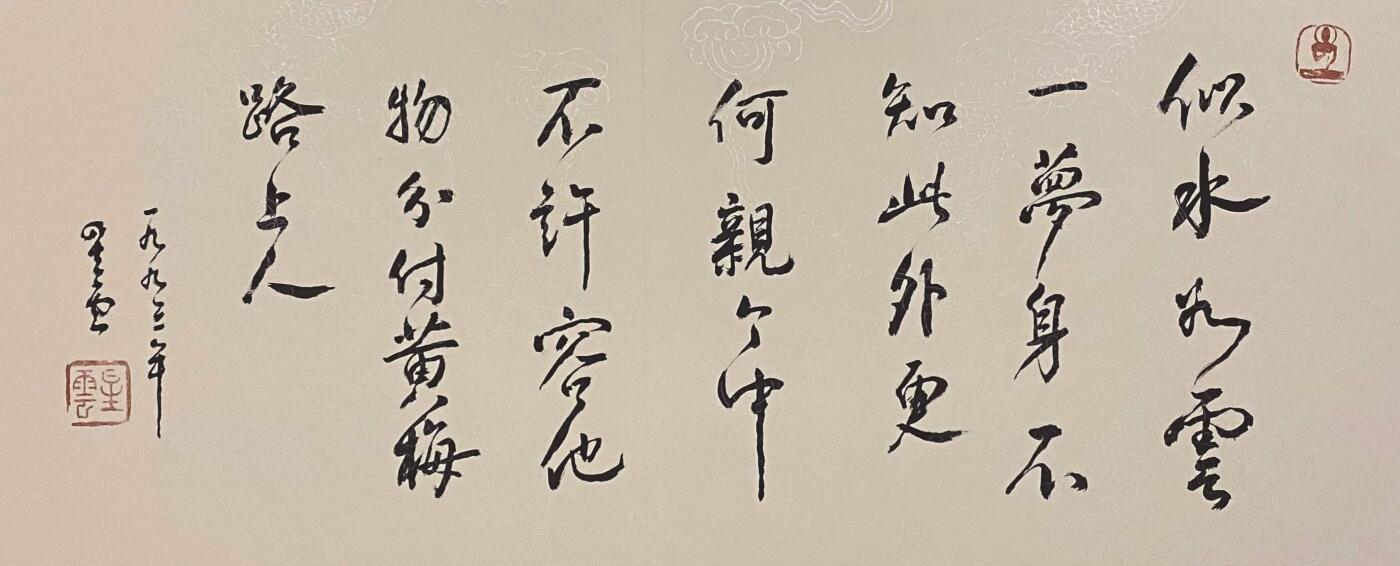 似水如雲
一夢身不
知此外更
何親个中
不許容他
物分付黃梅
路上人
一九九三年
星雲
星雲